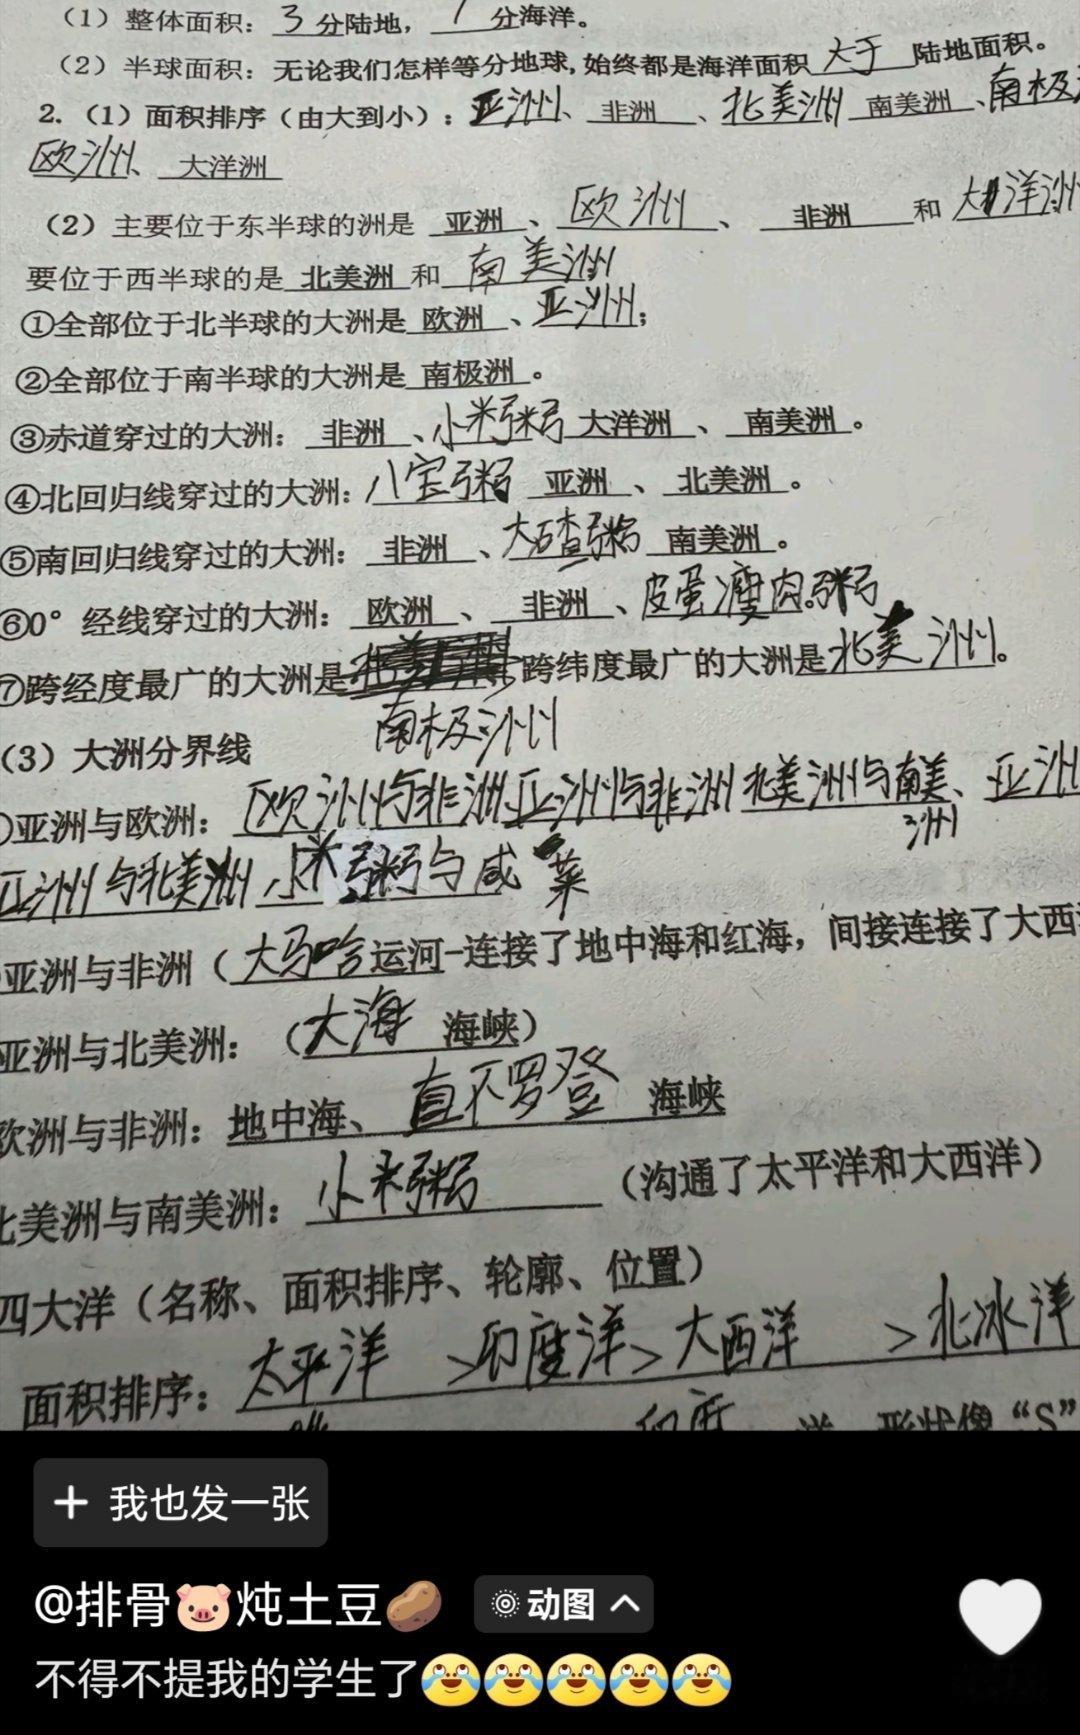 （1）整体面积：3分陆地，7分海洋。
（2）半球面积：无论我们怎样等分地球,始终都是海洋面积大于陆地面积。
2.（1）面积排序（由大到小）：亚洲、非洲、北美洲 南美洲、南极
欧洲、大洋洲
（2）主要位于东半球的洲是 亚洲、欧洲、非洲 和 大洋洲
要位于西半球的是 北美洲 和 南美洲
①全部位于北半球的大洲是 欧洲、亚洲；
②全部位于南半球的大洲是 南极洲。
③赤道穿过的大洲：非洲、小米粥 大洋洲、南美洲。
④北回归线穿过的大洲：八宝粥 亚洲、北美洲。
⑤南回归线穿过的大洲：非洲、大碴粥 南美洲。
⑥0°经线穿过的大洲：欧洲、非洲、皮蛋瘦肉粥
⑦跨经度最广的大洲是 跨纬度最广的大洲是北美洲。
南极洲
（3）大洲分界线
亚洲与欧洲：欧洲与非洲 亚洲与非洲 北美洲与南美、亚洲
洲
亚洲与北美洲，小米粥与咸菜
亚洲与非洲（大马哈运河-连接了地中海和红海，间接连接了大西
亚洲与北美洲：（大海 海峡）
欧洲与非洲：地中海、直不罗登 海峡
北美洲与南美洲：小米粥（沟通了太平洋和大西洋）
四大洋（名称、面积排序、轮廓、位置）
面积排序：太平洋＞印度洋＞大西洋＞北冰洋
印度 洋 形状像“S”
+ 我也发一张
@排骨🐷炖土豆🥔 动图
不得不提我的学生了😂😂😂😂😂